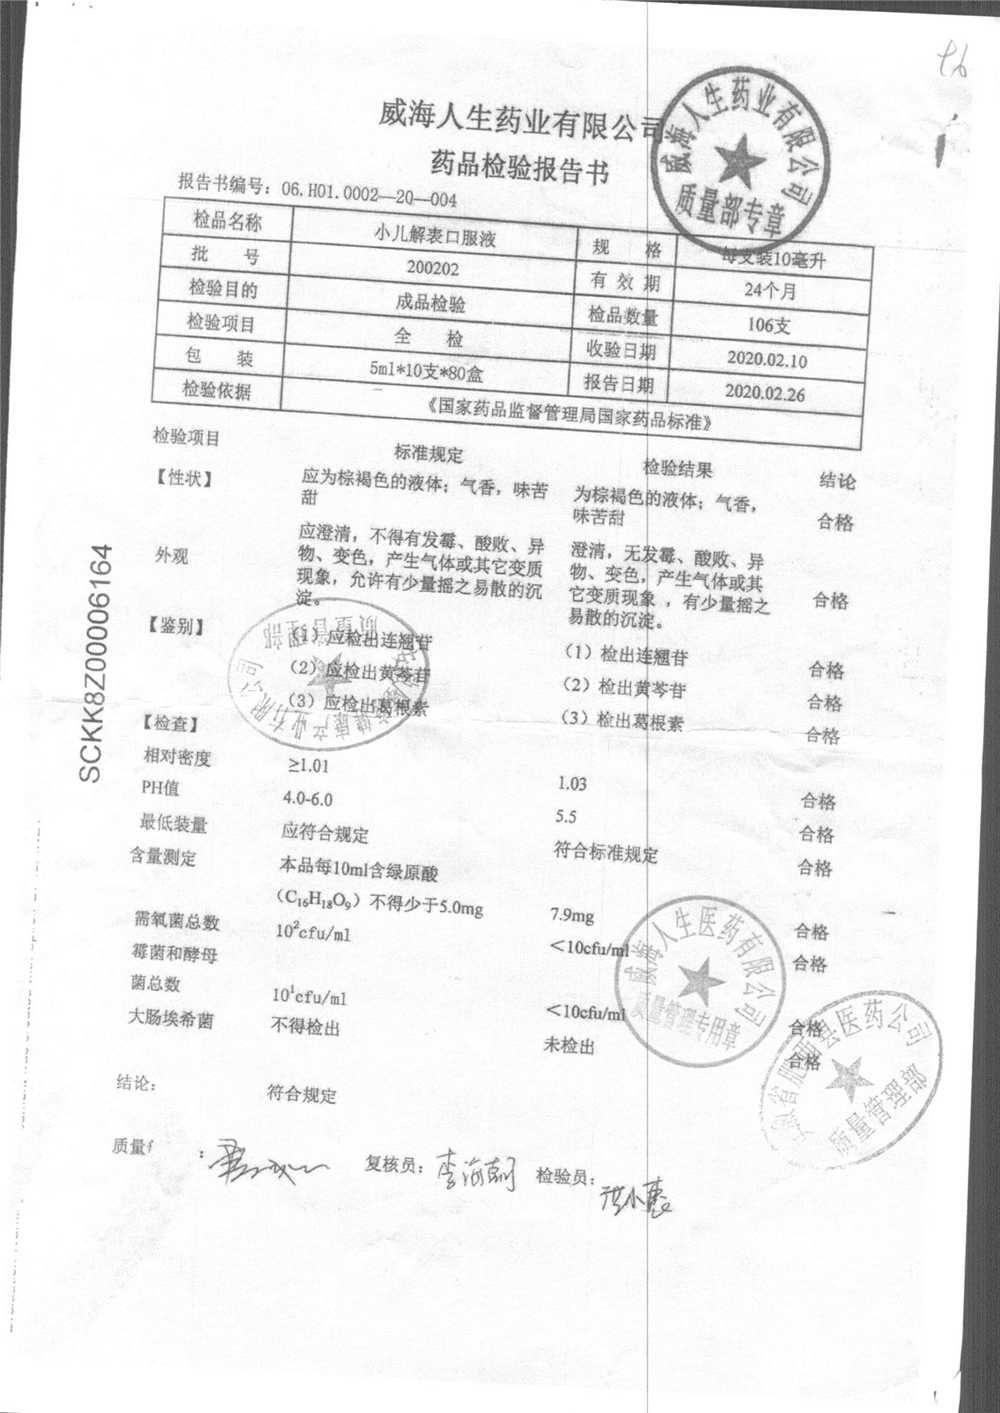 威海人生药业有限公司
药品检验报告书
报告书编号：06.H01.0002—20—004
检品名称 小儿解表口服液 规 格 每支装10毫升
批 号 200202 有 效 期 24个月
检验目的 成品检验 检品数量 106支
检验项目 全 检 收验日期 2020.02.10
包 装 5ml*10支*80盒 报告日期 2020.02.26
检验依据 《国家药品监督管理局国家药品标准》
检验项目 标准规定 检验结果 结论
【性状】 应为棕褐色的液体；气香，味苦 为棕褐色的液体；气香，
甜 味苦甜 合格
外观 应澄清，不得有发霉、酸败、异 澄清，无发霉、酸败、异
物、变色，产生气体或其它变质 物、变色，产生气体或其
现象，允许有少量摇之易散的沉 它变质现象，有少量摇之 合格
淀。 易散的沉淀。
【鉴别】 （1）应检出连翘苷 （1）检出连翘苷 合格
（2）应检出黄芩苷 （2）检出黄芩苷 合格
（3）应检出葛根素 （3）检出葛根素 合格
【检查】
相对密度 ≥1.01 1.03 合格
PH值 4.0-6.0 5.5 合格
最低装量 应符合规定 符合标准规定 合格
含量测定 本品每10ml含绿原酸
（C₁₆H₁₈O₉）不得少于5.0mg 7.9mg 合格
需氧菌总数 10²cfu/ml <10cfu/ml 合格
霉菌和酵母
菌总数 10¹cfu/ml <10cfu/ml 合格
大肠埃希菌 不得检出 未检出 合格
结论： 符合规定
质量 ： 复核员：李海朝 检验员：洪小惠
SCKK8Z00006164
威海人生药业有限公司
质量部专章
威海人生医药有限公司
质量管理专用章
安徽省肥西县医药公司
质量管理部
产业有限公司
质量管理部